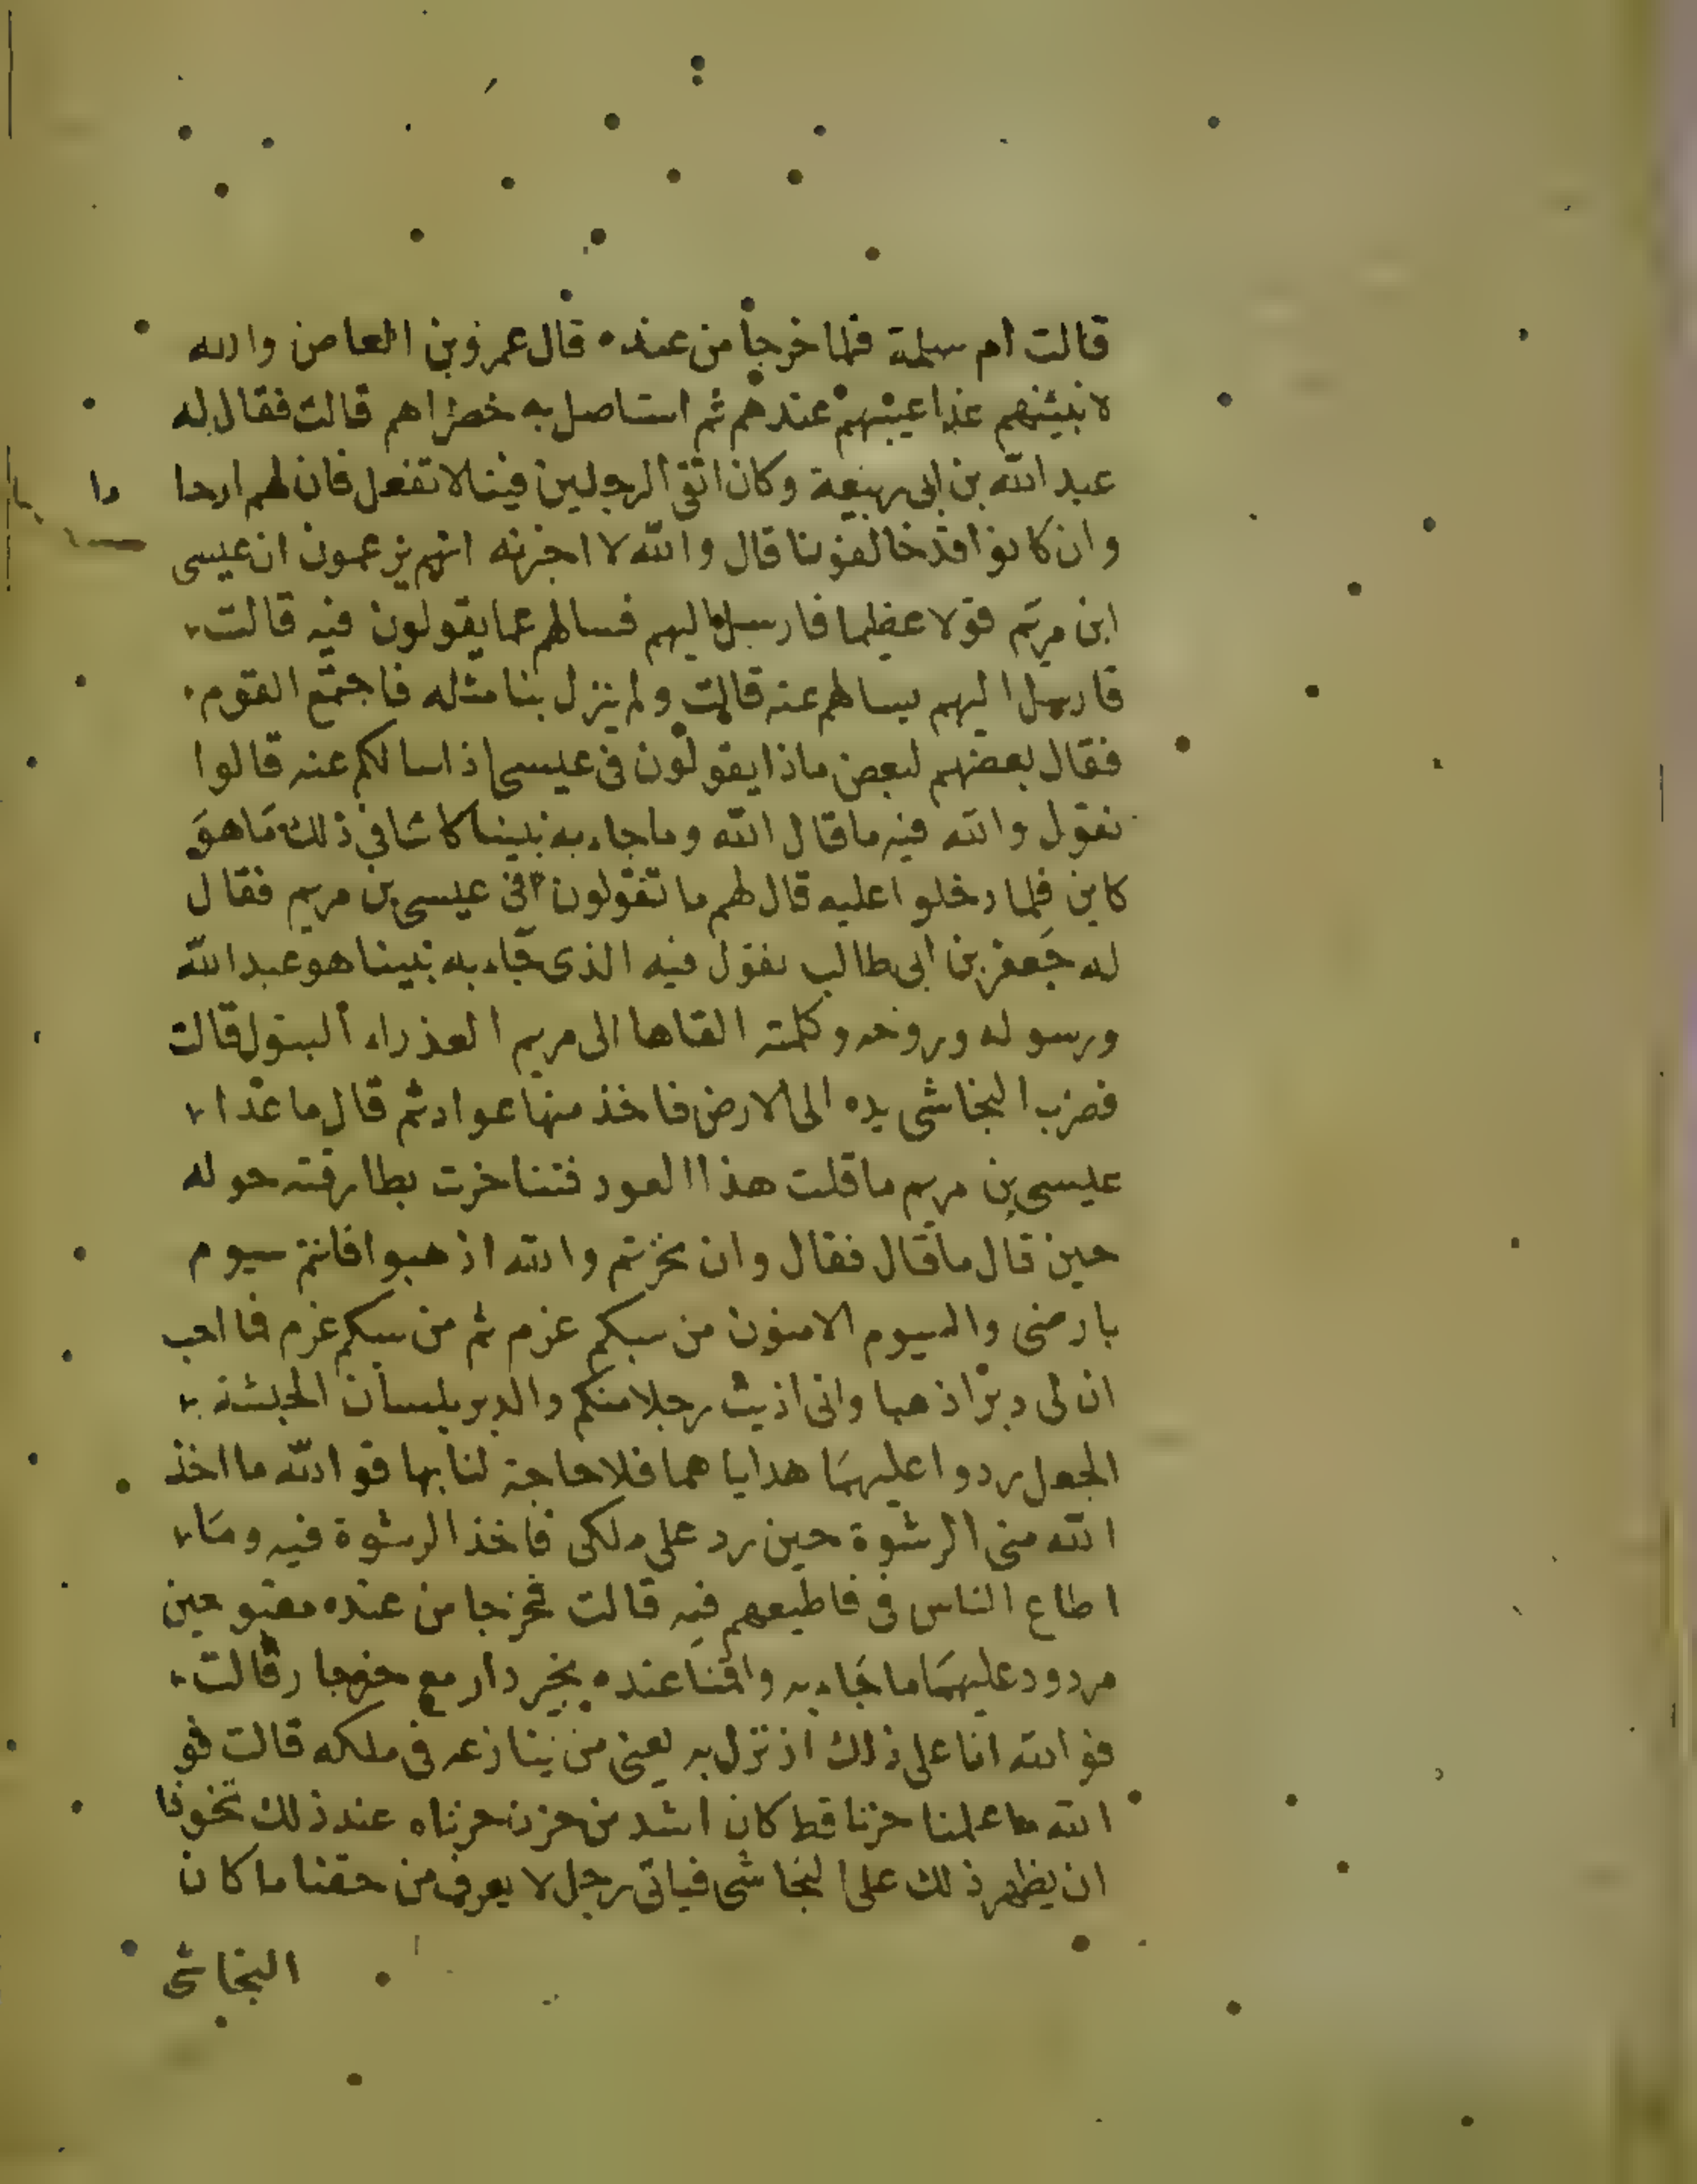 قالت ام سلمة فلما خرجا من عنده قال عمرو بن العاص والله
لانبينهم غدا عيبهم عندهم ثم استاصل به خضراهم قالت فقال له
عبد الله بن ابى ربيعة وكان اتقى الرجلين فينا لا تفعل فان لهم ارحا
ما
وان كانوا قد خالفونا قال والله لا اخبرنه انهم يزعمون ان عيسى
ابن مريم قولا عظيما فارسل اليهم فسالهم عما يقولون فيه قالت
فارسل اليهم يسالهم عنه قالت ولم ينزل بنا مثله فاجتمع القوم
فقال بعضهم لبعض ماذا يقولون فى عيسى اذا سالكم عنه قالوا
نقول والله فيه ما قال الله وما جاء به نبينا كاينا فى ذلك ما هو
كاين فلما دخلوا عليه قال لهم ما تقولون فى عيسى بن مريم فقال
له جعفر بن ابى طالب نقول فيه الذى جاء به نبينا هو عبد الله
ورسوله وروحه وكلمته القاها الى مريم العذراء البتول قالت
فضرب النجاشى يده الى الارض فاخذ منها عوادثم قال ما عدا
عيسى بن مريم ما قلت هذا العود فتناخرت بطارقته حوله
حين قال ما قال فقال وان نخرتم والله اذهبوا فانتم سيوم
بارضى والسيوم الامنون من سبكم غرم ثم من سبكم غرم فما احب
ان لى دبرا ذهبا وانى اذيت رجلا منكم والدبر بلسان الحبشة
الجعل ردوا عليهما هداياهما فلا حاجة لنا بها فوالله ما اخذ
الله منى الرشوة حين رد على ملكى فاخذ الرشوة فيه وما
اطاع الناس فى فاطيعهم فيه قالت فخرجا من عنده مقبوحين
مردود عليهما ما جاء به واقمنا عنده بخير دار مع خير جار قالت
فوالله انا على ذلك اذ نزل به يعنى من ينازعه فى ملكه قالت فو
الله ما علمنا حزنا قط كان اشد من حزن حزناه عند ذلك تخوفا
ان يظهر ذلك على النجاشى فياتى رجل لا يعرف من حقنا ما كان
النجاشى